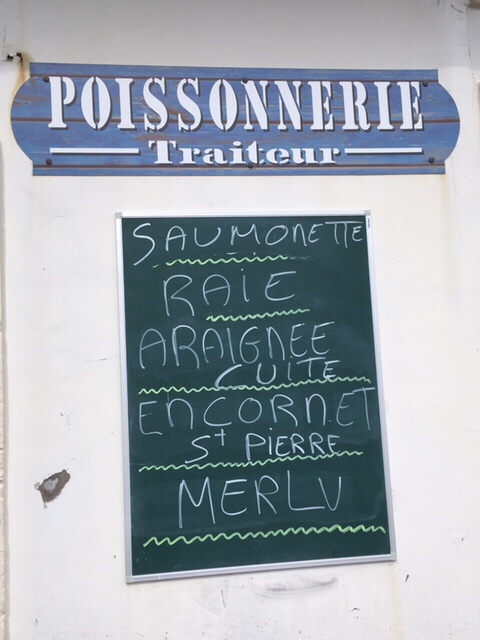 POISSONNERIE
Traiteur
SAUMONETTE
RAIE
ARAIGNEE
CUITE
ENCORNET
St PIERRE
MERLU